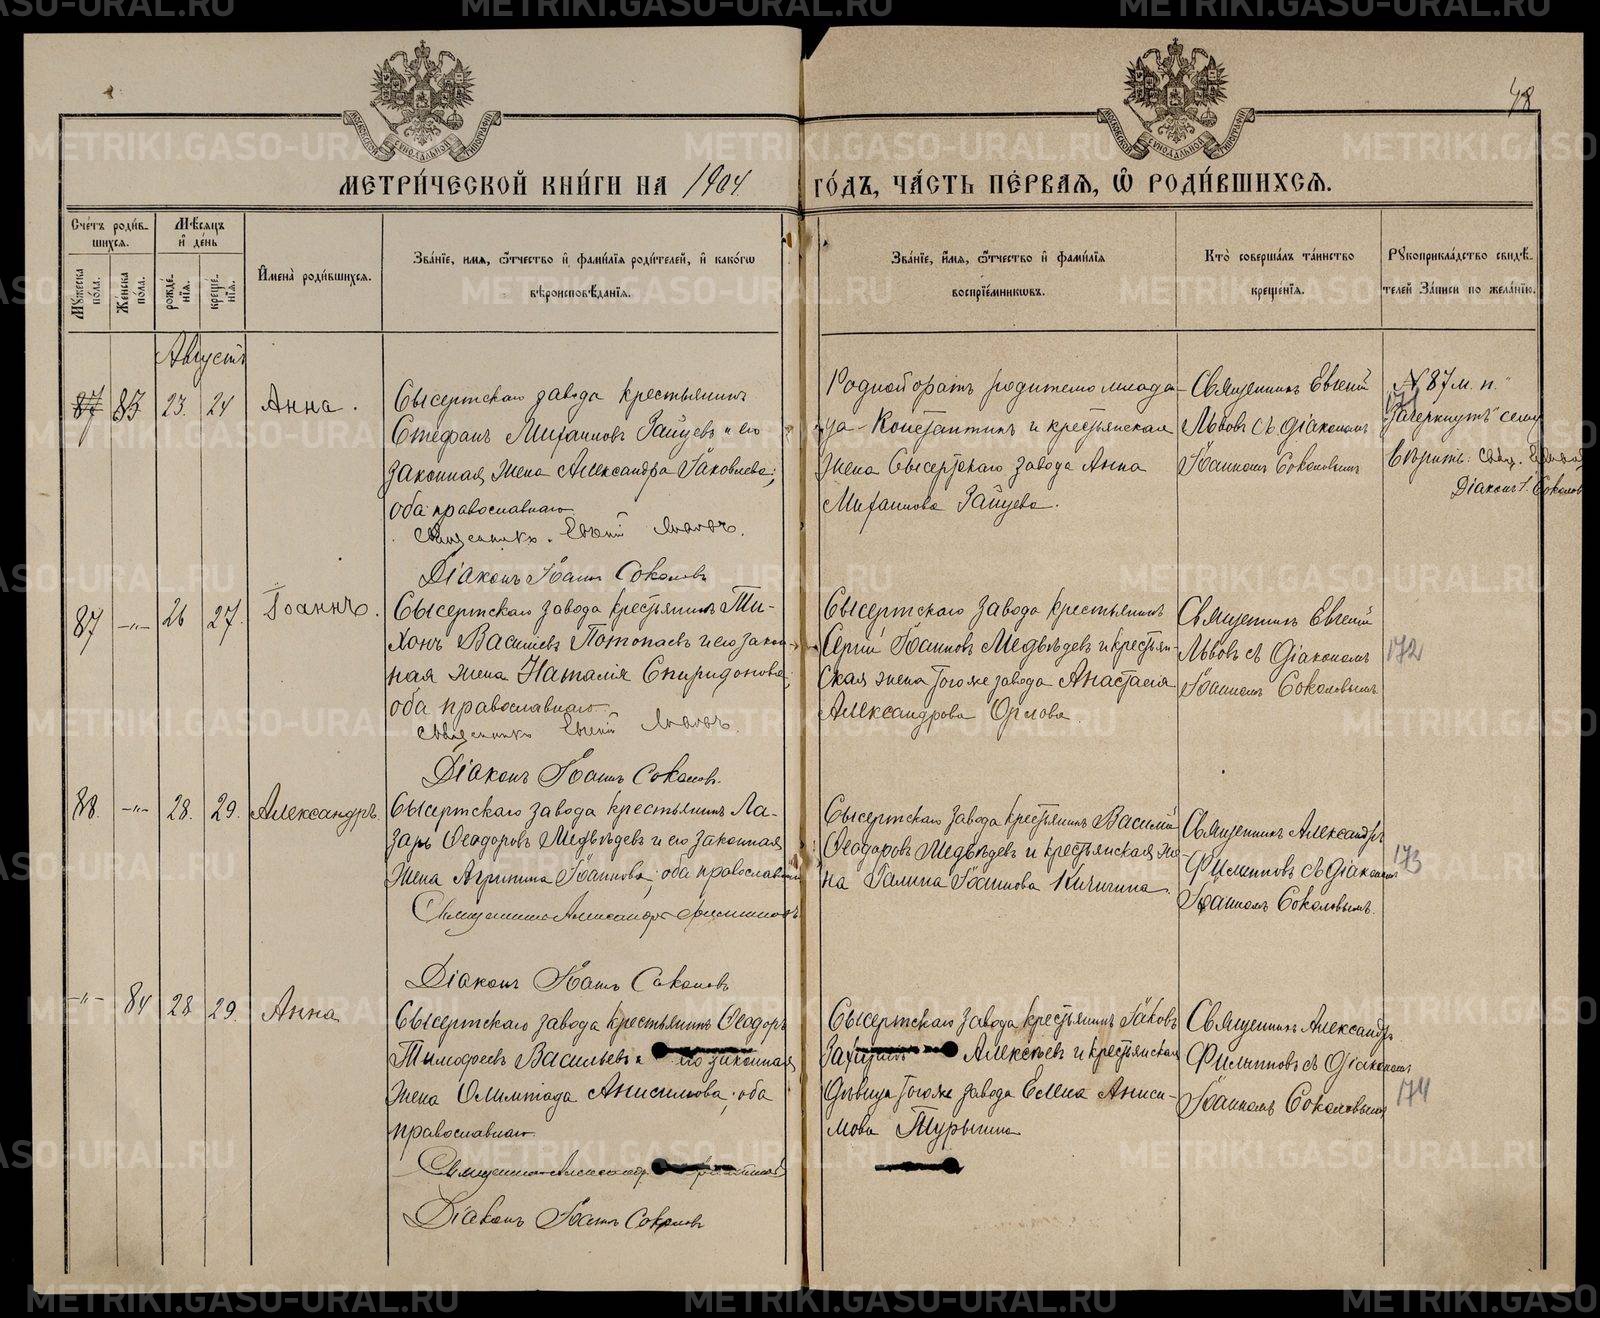 48
МОСКОВСКОЙ СѴНОДАЛЬНОЙ ТИПОГРАФІИ
МОСКОВСКОЙ СѴНОДАЛЬНОЙ ТИПОГРАФІИ
МЕТРИ́ЧЕСКОЙ КНИ́ГИ НА 1904 ГО́ДЪ, ЧА́СТЬ ПЕ́РВАЯ, Ѡ҆ РОДИ́ВШИХСЯ.
Сче́тъ роди́в-
шихся.
Мꙋ́жеска
по́ла.
Же́нска
по́ла.
Мѣ́сяцъ
и҆ де́нь
рожде-
нїя.
креще-
нїя.
И҆мена̀ роди́вшихся.
Зва́нїе, и҆́мя, ѻ҆́тчество и҆ фами́лїя роди́телей, и҆ како́гѡ
вѣроисповѣ́данїя.
Зва́нїе, и҆́мя, ѻ҆́тчество и҆ фами́лїя
воспрїе́мникѡвъ.
Кто̀ соверша́лъ та́инство
креще́нїя.
Рꙋкоприкла́дство свидѣ́-
телей за́писи по жела́нїю.
Августъ
87 83 23. 24 Анна.
Сысертскаго завода крестьянинъ
Стефанъ Михаиловъ Зайцевъ и его
законная жена Александра Іаковлева;
оба православнаго
Священникъ Евгеній Львовъ.
Діаконъ Іоаннъ Соколовъ
Родной братъ родителю млада-
ца Константинъ и крестьянская
жена Сысертскаго завода Анна
Михаилова Зайцева.
Священникъ Евгеній
Львовъ съ діакономъ
Іоанномъ Соколовымъ
№ 87 м. п.
171
"Зачеркнутъ" сему
вѣрить: свящ. Е. Львовъ
Діаконъ І. Соколовъ
87 -"- 26 27. Іоаннъ.
Сысертскаго завода крестьянинъ Ти-
хонъ Васильевъ Потопаевъ и его закон-
ная жена Наталія Спиридонова;
оба православнаго
Священникъ Евгеній Львовъ.
Діаконъ Іоаннъ Соколовъ.
Сысертскаго завода крестьянинъ
Сергій Іоанновъ Медвѣдевъ и крестьян-
ская жена того же завода Анастасія
Александрова Орлова.
Священникъ Евгеній
Львовъ съ діакономъ
Іоанномъ Соколовымъ
172
88. -"- 28. 29. Александръ.
Сысертскаго завода крестьянинъ Ла-
зарь Ѳеодоровъ Медвѣдевъ и его законная
жена Агрипина Іоаннова; оба православнаго
Священникъ Александръ Филипповъ
Діаконъ Іоаннъ Соколовъ
Сысертскаго завода крестьянинъ Василій
Ѳеодоровъ Медвѣдевъ и крестьянская же-
на Галина Іоаннова Кичигина.
Священникъ Александръ
Филипповъ съ діакономъ
Іоанномъ Соколовымъ.
173
-"- 84 28 29. Анна
Сысертскаго завода крестьянинъ Ѳеодоръ
Тимофеевъ Васильевъ и его законная
жена Олимпіада Анисимова; оба
православнаго
Священникъ Александръ Филипповъ
Діаконъ Іоаннъ Соколовъ
Сысертскаго завода крестьянинъ Іаковъ
Алексѣевъ и крестьянская
дѣвица того же завода Елена Аниси-
мова Турыгина
Священникъ Александръ
Филипповъ съ діакономъ
Іоанномъ Соколовымъ
174
METRIKI.GASO-URAL.RU